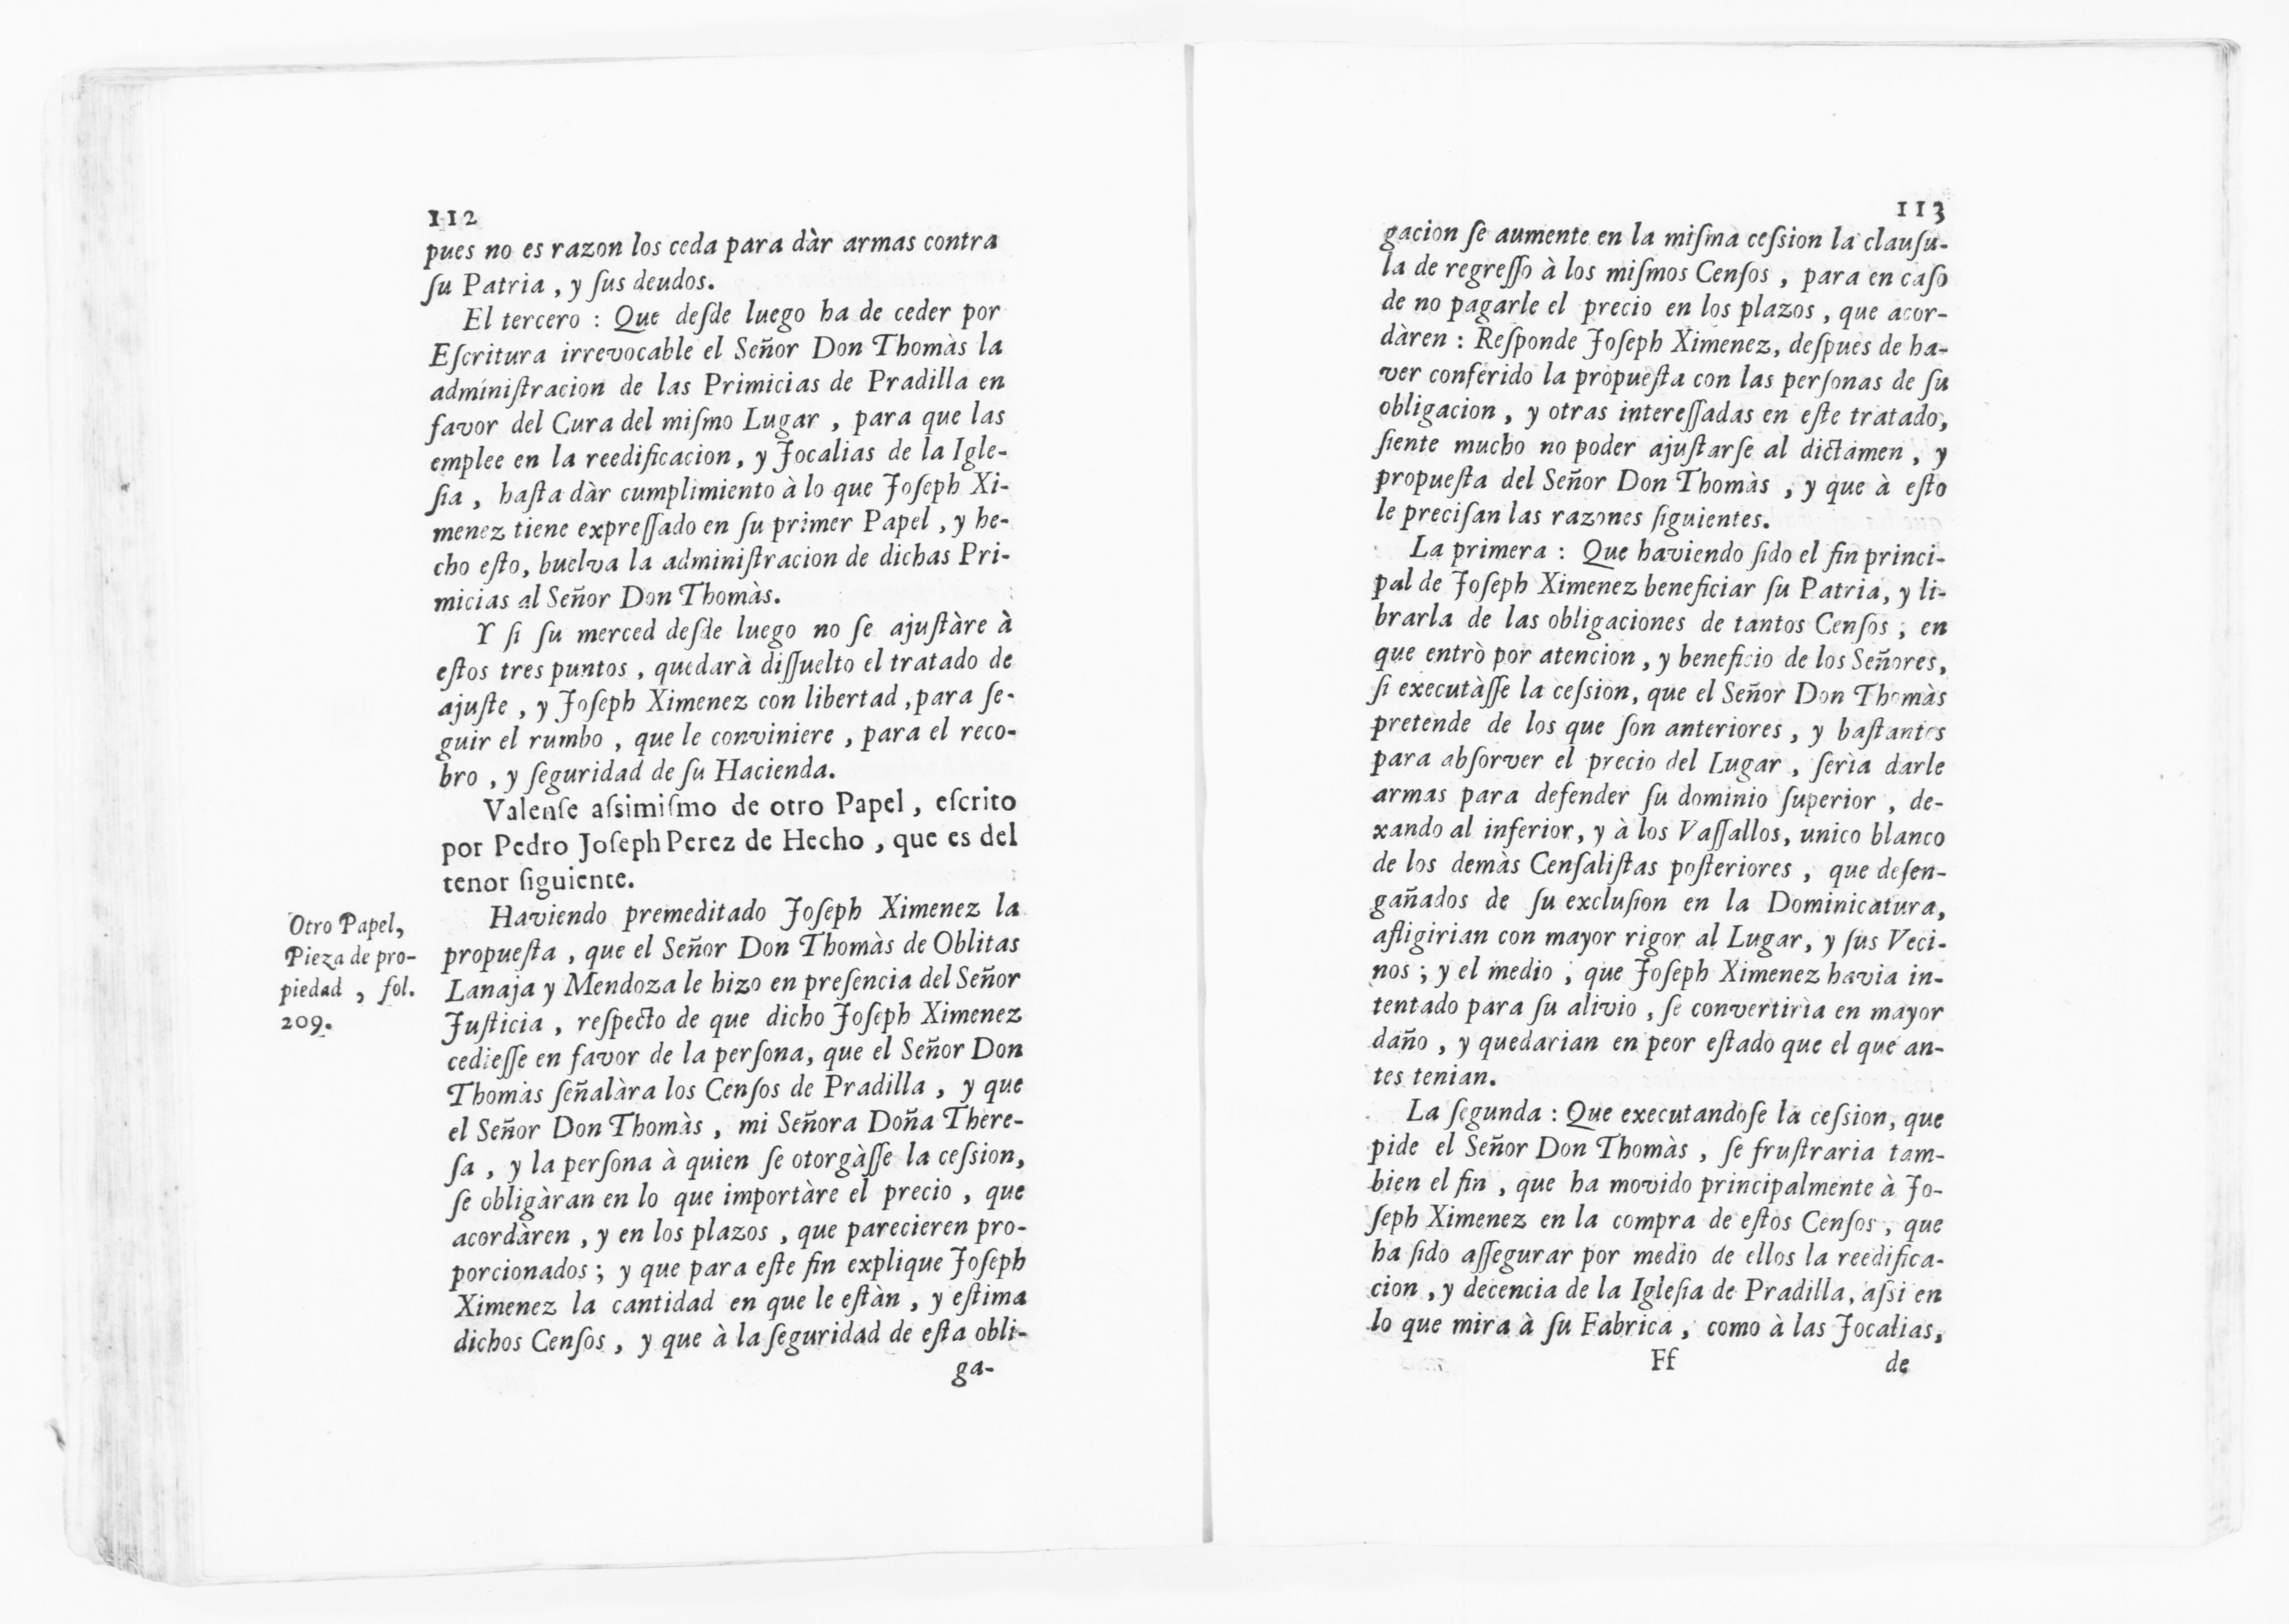 112
pues no es razon los ceda para dàr armas contra
ſu Patria , y ſus deudos.
El tercero : Que deſde luego ha de ceder por
Eſcritura irrevocable el Señor Don Thomàs la
adminiſtracion de las Primicias de Pradilla en
favor del Cura del miſmo Lugar , para que las
emplee en la reedificacion, y Jocalias de la Igle-
ſia , haſta dàr cumplimiento à lo que Joſeph Xi-
menez tiene expreſſado en ſu primer Papel , y he-
cho eſto, buelva la adminiſtracion de dichas Pri-
micias al Señor Don Thomàs.
Y ſi ſu merced deſde luego no ſe ajuſtàre à
eſtos tres puntos , quedarà diſſuelto el tratado de
ajuſte , y Joſeph Ximenez con libertad ,para ſe-
guir el rumbo , que le conviniere , para el reco-
bro , y ſeguridad de ſu Hacienda.
Valenſe aſsimiſmo de otro Papel , eſcrito
por Pedro Joſeph Perez de Hecho , que es del
tenor ſiguiente.
Otro Papel,
Pieza de pro-
piedad , fol.
209.
Haviendo premeditado Joſeph Ximenez la
propueſta , que el Señor Don Thomàs de Oblitas
Lanaja y Mendoza le hizo en preſencia del Señor
Juſticia , reſpecto de que dicho Joſeph Ximenez
cedieſſe en favor de la perſona, que el Señor Don
Thomàs ſeñalàra los Cenſos de Pradilla , y que
el Señor Don Thomàs , mi Señora Doña There-
ſa , y la perſona à quien ſe otorgàſſe la ceſsion,
ſe obligàran en lo que importàre el precio , que
acordàren , y en los plazos , que parecieren pro-
porcionados ; y que para eſte fin explique Joſeph
Ximenez la cantidad en que le eſtàn , y eſtima
dichos Cenſos , y que à la ſeguridad de eſta obli-
ga-
113
gacion ſe aumente en la miſma ceſsion la clauſu-
la de regreſſo à los miſmos Cenſos , para en caſo
de no pagarle el precio en los plazos , que acor-
dàren : Reſponde Joſeph Ximenez, deſpues de ha-
ver conferido la propueſta con las perſonas de ſu
obligacion , y otras intereſſadas en eſte tratado,
ſiente mucho no poder ajuſtarſe al dictamen , y
propueſta del Señor Don Thomàs , y que à eſto
le preciſan las razones ſiguientes.
La primera : Que haviendo ſido el fin princi-
pal de Joſeph Ximenez beneficiar ſu Patria, y li-
brarla de las obligaciones de tantos Cenſos ; en
que entrò por atencion , y beneficio de los Señores,
ſi executàſſe la ceſsion, que el Señor Don Thomàs
pretende de los que ſon anteriores , y baſtantes
para abſorver el precio del Lugar , ſerìa darle
armas para defender ſu dominio ſuperior , de-
xando al inferior, y à los Vaſſallos, unico blanco
de los demàs Cenſaliſtas poſteriores , que deſen-
gañados de ſu excluſion en la Dominicatura,
afligirian con mayor rigor al Lugar, y ſus Veci-
nos ; y el medio , que Joſeph Ximenez havia in-
tentado para ſu alivio , ſe convertirìa en mayor
daño , y quedarian en peor eſtado que el que an-
tes tenian.
La ſegunda : Que executandoſe la ceſsion, que
pide el Señor Don Thomàs , ſe fruſtraria tam-
bien el fin , que ha movido principalmente à Jo-
ſeph Ximenez en la compra de eſtos Cenſos , que
ha ſido aſſegurar por medio de ellos la reedifica-
cion , y decencia de la Igleſia de Pradilla, aſsi en
lo que mira à ſu Fabrica , como à las Jocalias,
Ff de